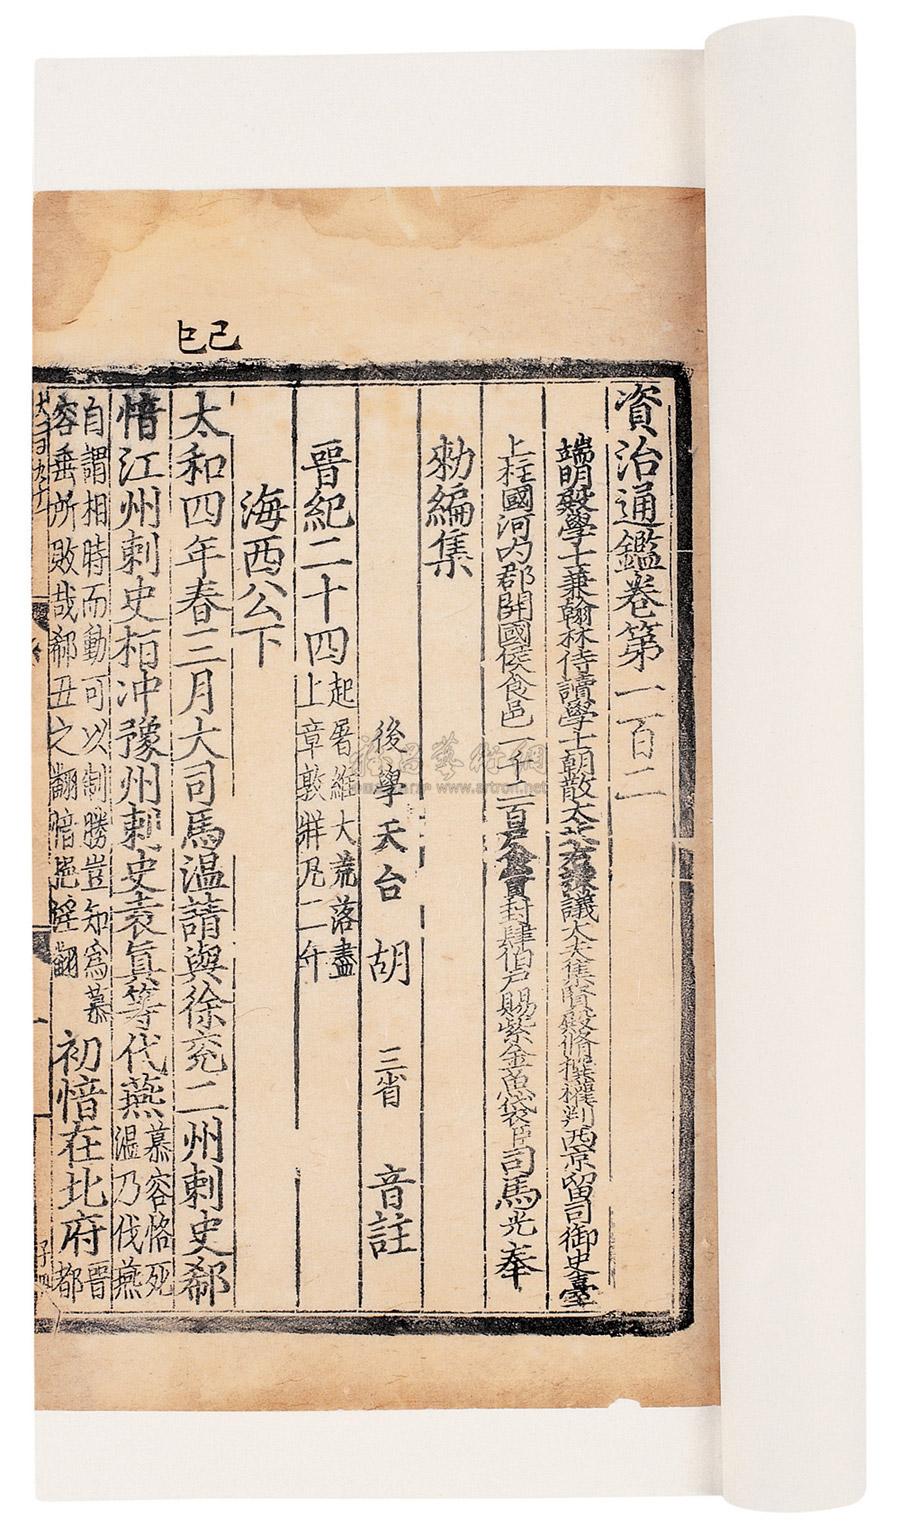 資治通鑑卷第一百二
端明殿學士兼翰林侍讀學士朝散大夫右諫議大夫集賢殿脩撰權判西京留司御史臺
上柱國河內郡開國侯食邑一千二百戶食實封肆伯戶賜紫金魚袋臣司馬光奉
勑編集
後學天台胡三省音註
晉紀二十四起屠維大荒落盡
上章敦牂凡二年
海西公下
己巳
太和四年春三月大司馬温請與徐兗二州刺史郗
愔江州刺史桓冲豫州刺史袁真等伐燕慕容恪死
温乃伐燕
自謂相時而動可以制勝豈知為慕
容垂所敗哉郗丑之翻愔挹淫翻
初愔在北府晉
都
雅昌藝術網
www.artron.net